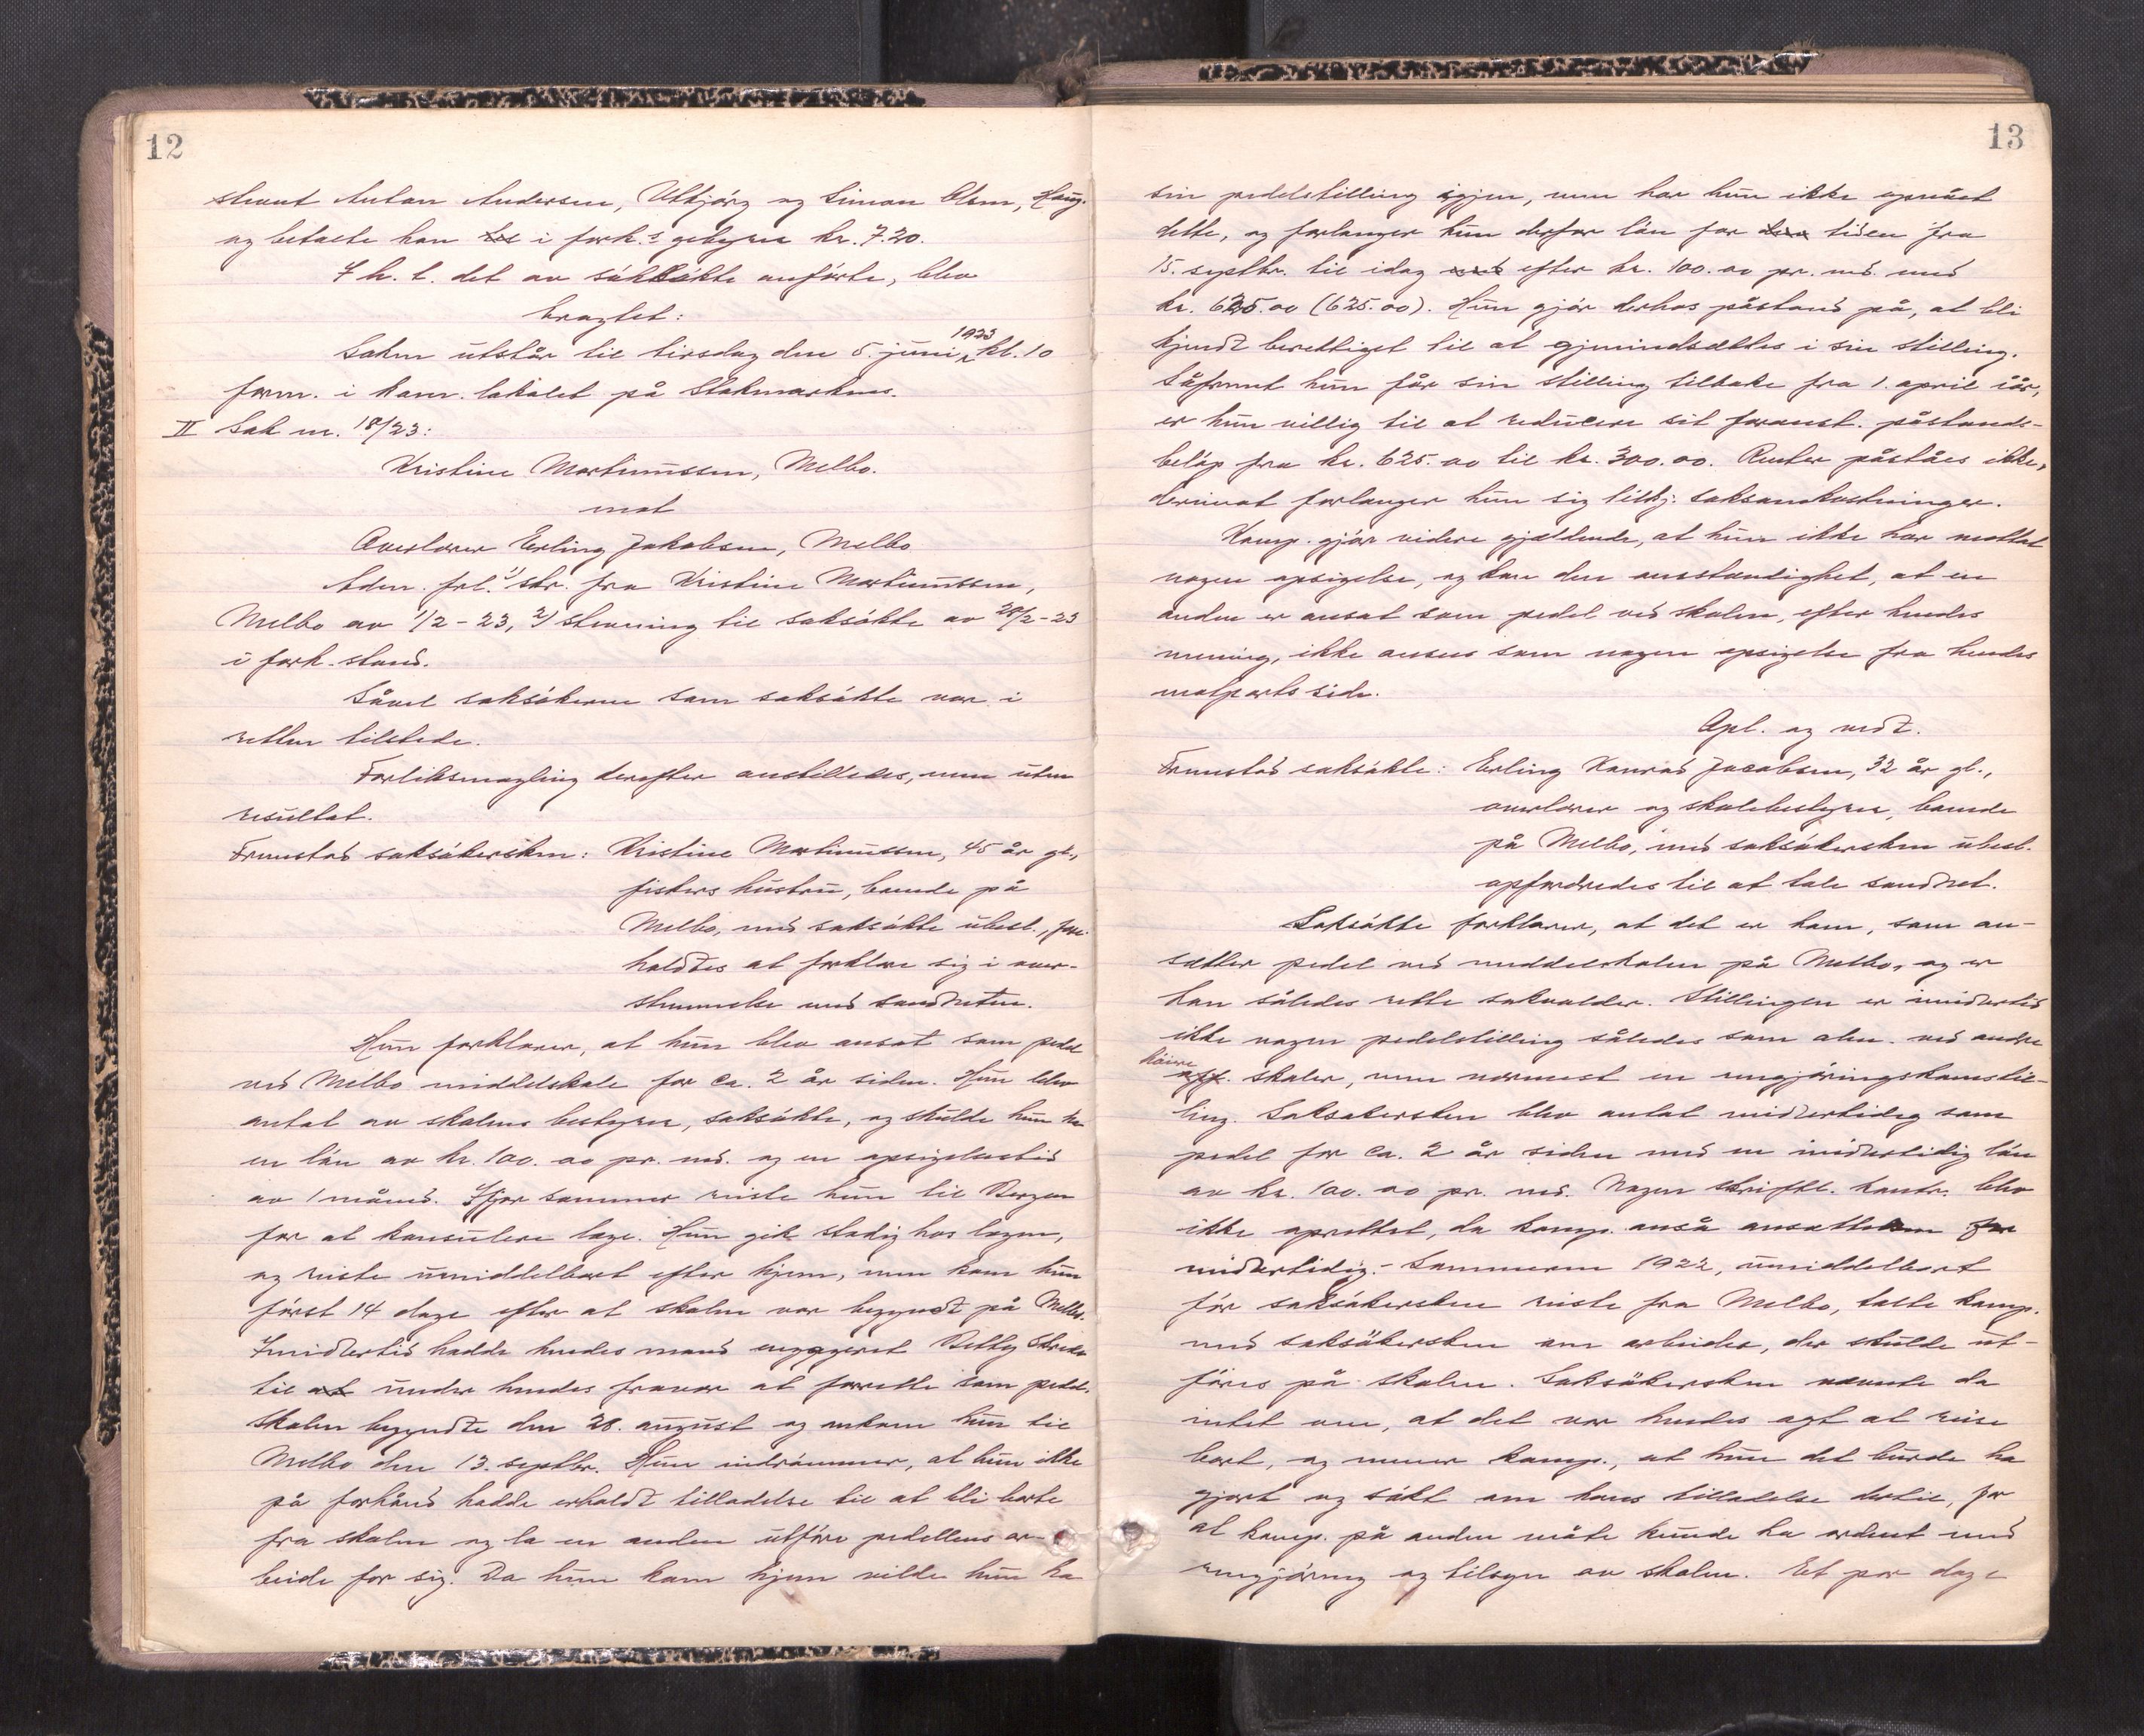 12
stevnt Anton Andersen, Utbjörg og Simon Olsen, Haug.
og betalte han til i fork.s gebyrer kr. 7.20.
I h. t. det av saksökte anförte, blev
bragtet:
Saken utstår til tirsdag den 5. juni 1923 kl. 10
form. i kom. lokalet på Stokmarknes.
II Sak nr. 18/23:
Kristine Martinussen, Melbo.
mot
Overlærer Erling Jakobsen, Melbo
Adm. frl. 1) skr. fra Kristine Martinussen,
Melbo av 1/2-23, 2) stevning til saksökte av 28/2-23
i fork. stand.
Såvel saksökeren som saksökte var i
retten tilstede.
Forliksmægling derefter anstilledes, men uten
resultat.
Fremstod saksökersken: Kristine Martinussen, 45 år gl.,
fiskers hustru, boende på
Melbo, med saksökte ubesl., fore-
holdtes at forklare sig i over-
stemmelse med sandheten.
Hun forklarer, at hun blev ansat som pedel
ved Melbo middelskole for ca. 2 år siden. Hun blev
antat av skolens bestyrer, saksökte, og skulde hun ha
en lön av kr. 100.00 pr. md. og en opsigelsestid
av 1 måned. Ifjor sommer reiste hun til Bergen
for at konsulere læge. Hun gik stadig hos lægen,
og reiste umiddelbart efter hjem, men kom hun
först 14 dage efter at skolen var begyndt på Melbo.
Imidlertid hadde hendes mand engageret Betty
til at under hendes fravær at forrette som pedel.
Skolen begyndte den 28. august og ankom hun til
Melbo den 13. septbr. Hun indrömmer, at hun ikke
på forhånd hadde erholdt tilladelse til at bli borte
fra skolen og la en anden utföre pedellens ar-
beide for sig. Da hun kom hjem vilde hun ha
13
sin pedelstilling igjen, men har hun ikke opnået
dette, og forlanger hun derfor lön for den tiden fra
15. septbr. til idag med efter kr. 100.00 pr. md. med
kr. 625.00 (625.00). Hun gjör derhos påstand på, at bli
kjendt berettiget til at gjenindsættes i sin stilling.
Såfremt hun får sin stilling tilbake fra 1. april iår,
er hun villig til at reducere sit foranst. påstands-
belöp fra kr. 625.00 til kr. 300.00. Renter påståes ikke,
derimot forlanger hun sig tilkj. saksomkostninger.
Komp. gjör videre gjældende, at hun ikke har mottat
nogen opsigelse, og kan den omstændighet, at en
anden er ansat som pedel ved skolen, efter hendes
mening, ikke ansees som nogen opsigelse fra hendes
motparts side.
Opl. og vedt.
Fremstod saksökte: Erling Konrad Jacobsen, 32 år gl.,
overlærer og skolebestyrer, boende
på Melbo, med saksökersken ubesl.
opfordredes til at tale sandhet.
Saksökte forklarer, at det er ham, som an-
sætter pedel ved middelskolen på Melbo, og er
han således rette sakvolder. Stillingen er imidlertid
ikke nogen pedelstilling således som alm. ved andre
höiere
off. skoler, men nærmest en rengjöringskonestil-
ling. Saksökersken blev antat midlertidig som
pedel for ca. 2 år siden med en midlertidig lön
av kr. 100.00 pr. md. Nogen skriftl. kontr. blev
ikke oprettet, da komp. anså ansættelsen for
midlertidig.- Sommeren 1922, umiddelbart
för saksökersken reiste fra Melbo, talte komp.
med saksökersken om arbeider, der skulde ut-
föres på skolen. Saksökersken nævnte da
intet om, at det var hendes agt at reise
bort, og mener komp., at hun det burde ha
gjort og sökt om hans tilladelse dertil, for
at komp. på anden måte kunde ha ordnet med
rengjöring og tilsyn av skolen. Et par dage